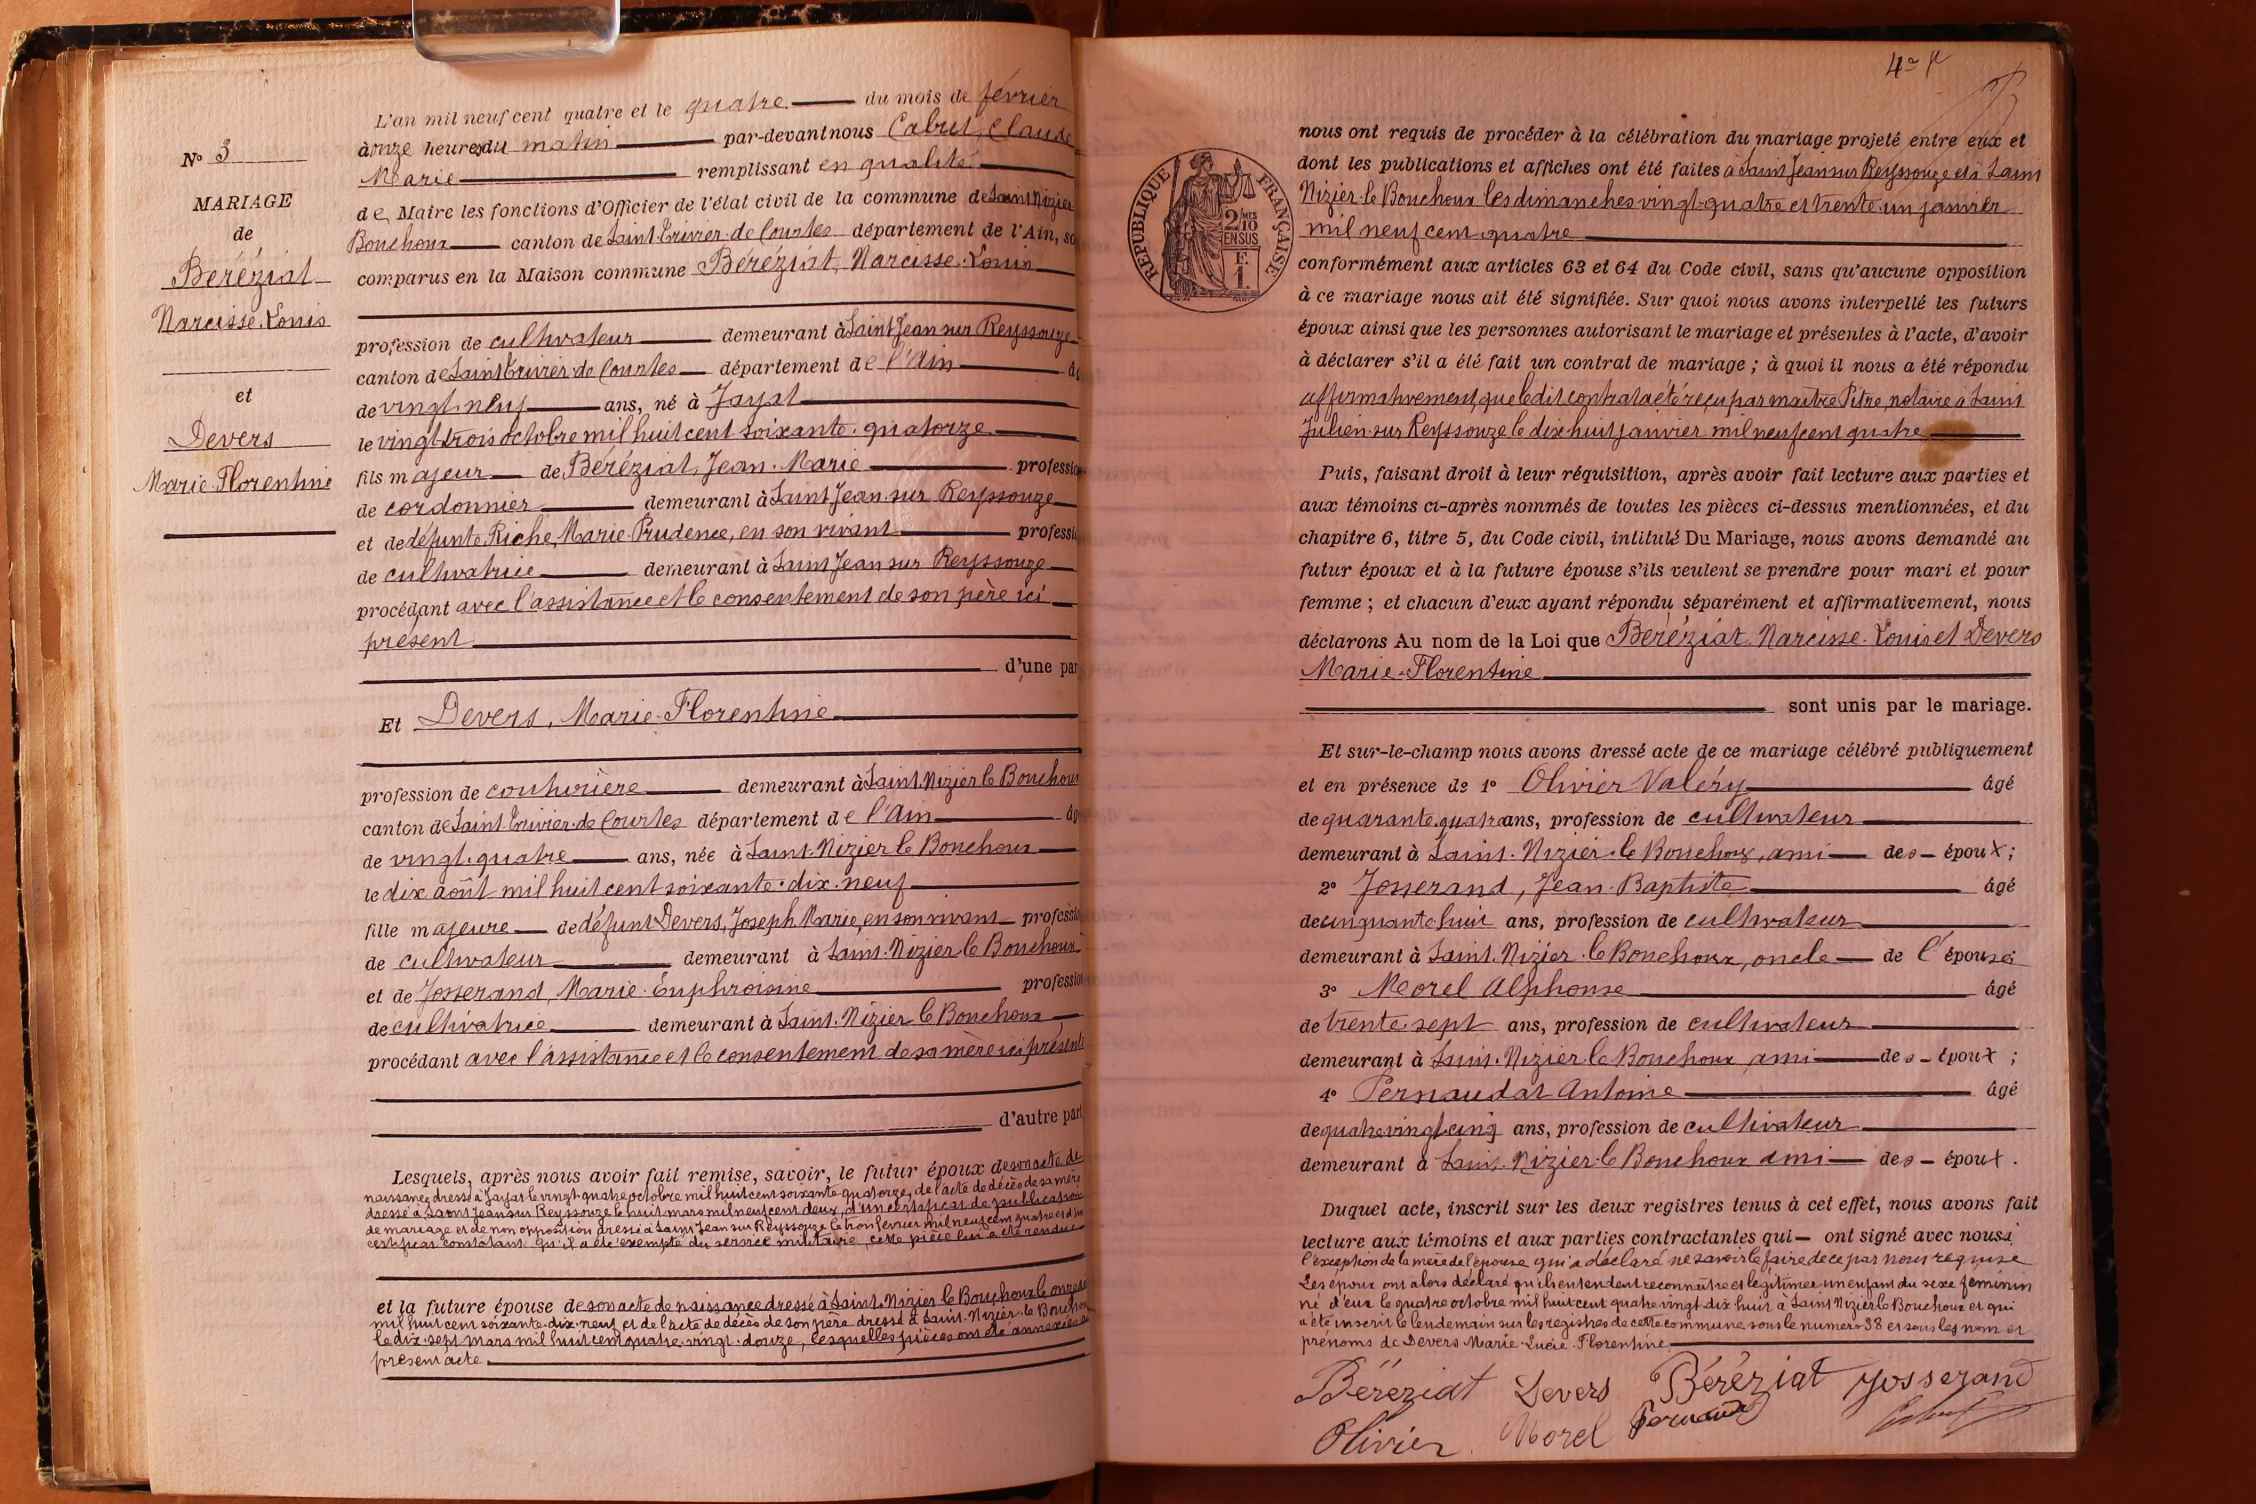 N° 3
MARIAGE
de
Béréziat
Narcisse-Louis
et
Devers
Marie-Florentine
L'an mil neuf cent quatre et le quatre du mois de février
à onze heures du matin par-devant nous Cabut, Claude
Marie remplissant en qualité
de Maire les fonctions d'Officier de l'état civil de la commune de Saint Nizier
Bouchoux canton de Saint Trivier-de Courtes département de l'Ain, so
comparus en la Maison commune Béréziat, Narcisse-Louis
profession de cultivateur demeurant à Saint Jean sur Reyssouze
canton de Saint Trivier de Courtes département de l'Ain
de vingt-neuf ans, né à Jayat
le vingt trois octobre mil huit cent soixante-quatorze
fils majeur de Béréziat, Jean-Marie profession
de cordonnier demeurant à Saint Jean-sur Reyssouze
et de défunte Riche, Marie-Prudence, en son vivant professi
de cultivatrice demeurant à Saint Jean sur Reyssouze
procédant avec l'assistance et le consentement de son père ici
présent
d'une par
Et Devers, Marie-Florentine
profession de couturière demeurant à Saint-Nizier le Bouchoux
canton de Saint Trivier-de Courtes département de l'Ain âg
de vingt-quatre ans, née à Saint-Nizier le Bouchoux
le dix août mil huit cent soixante-dix-neuf
fille majeure de défunt Devers, Joseph Marie, en son vivant professio
de cultivateur demeurant à Saint-Nizier-le Bouchoux
et de Josserand, Marie-Euphroisine profession
de cultivatrice demeurant à Saint-Nizier le Bouchoux
procédant avec l'assistance et le consentement de sa mère ici présente
d'autre part
Lesquels, après nous avoir fait remise, savoir, le futur époux de son acte de
naissance dressé à Jayat le vingt-quatre octobre mil huit cent soixante-quatorze, de l'acte de décès de sa mère
dressé à Saint Jean sur Reyssouze le huit mars mil neuf cent deux, d'un certificat de publication
de mariage et de non opposition dressé à Saint Jean sur Reyssouze le trois février mil neuf cent quatre et d'un
certificat constatant qu'il a été exempté du service militaire, cette pièce lui a été rendue
et la future épouse de son acte de naissance dressé à Saint-Nizier le Bouchoux le onze août
mil huit cent soixante-dix-neuf et de l'acte de décès de son père dressé à Saint-Nizier-le Bouchoux
le dix-sept mars mil huit cent quatre-vingt-douze, lesquelles pièces ont été annexées au
présent acte
RÉPUBLIQUE FRANÇAISE
2/10
EN SUS
F.
1.
nous ont requis de procéder à la célébration du mariage projeté entre eux et
dont les publications et affiches ont été faites à Saint Jean sur Reyssouze et à Saint
Nizier-le Bouchoux les dimanches vingt-quatre et trente-un janvier
mil neuf cent quatre
conformément aux articles 63 et 64 du Code civil, sans qu'aucune opposition
à ce mariage nous ait été signifiée. Sur quoi nous avons interpellé les futurs
époux ainsi que les personnes autorisant le mariage et présentes à l'acte, d'avoir
à déclarer s'il a été fait un contrat de mariage ; à quoi il nous a été répondu
affirmativement, que le dit contrat a été reçu par maître Pitre, notaire à Saint
Julien-sur Reyssouze le dix huit janvier mil neuf cent quatre
Puis, faisant droit à leur réquisition, après avoir fait lecture aux parties et
aux témoins ci-après nommés de toutes les pièces ci-dessus mentionnées, et du
chapitre 6, titre 5, du Code civil, intitulé Du Mariage, nous avons demandé au
futur époux et à la future épouse s'ils veulent se prendre pour mari et pour
femme ; et chacun d'eux ayant répondu séparément et affirmativement, nous
déclarons Au nom de la Loi que Béréziat Narcisse-Louis et Devers
Marie-Florentine
sont unis par le mariage.
Et sur-le-champ nous avons dressé acte de ce mariage célébré publiquement
et en présence de 1° Olivier Valéry âgé
de quarante quatre ans, profession de cultivateur
demeurant à Saint-Nizier-le Bouchoux, ami des époux ;
2° Josserand, Jean-Baptiste âgé
de cinquante huit ans, profession de cultivateur
demeurant à Saint-Nizier-le Bouchoux, oncle de l'épouse
3° Morel Alphonse âgé
de trente-sept ans, profession de cultivateur
demeurant à Saint-Nizier le Bouchoux ami des époux ;
4° Pernaudat Antoine âgé
de quatre vingt cinq ans, profession de cultivateur
demeurant à Saint-Nizier-le Bouchoux ami des époux.
Duquel acte, inscrit sur les deux registres tenus à cet effet, nous avons fait
lecture aux témoins et aux parties contractantes qui ont signé avec nous à
l'exception de la mère de l'épouse qui a déclaré ne savoir le faire de ce par nous requise
Les époux ont alors déclaré qu'ils entendent reconnaître et légitimer un enfant du sexe féminin
né d'eux le quatre octobre mil huit cent quatre vingt-dix huit à Saint Nizier le Bouchoux et qui
a été inscrit le lendemain sur les registres de cette commune sous le numéro 38 et sous les nom et
prénoms de Devers Marie-Lucie-Florentine
Béréziat Devers Béréziat Josserand
Olivier Morel